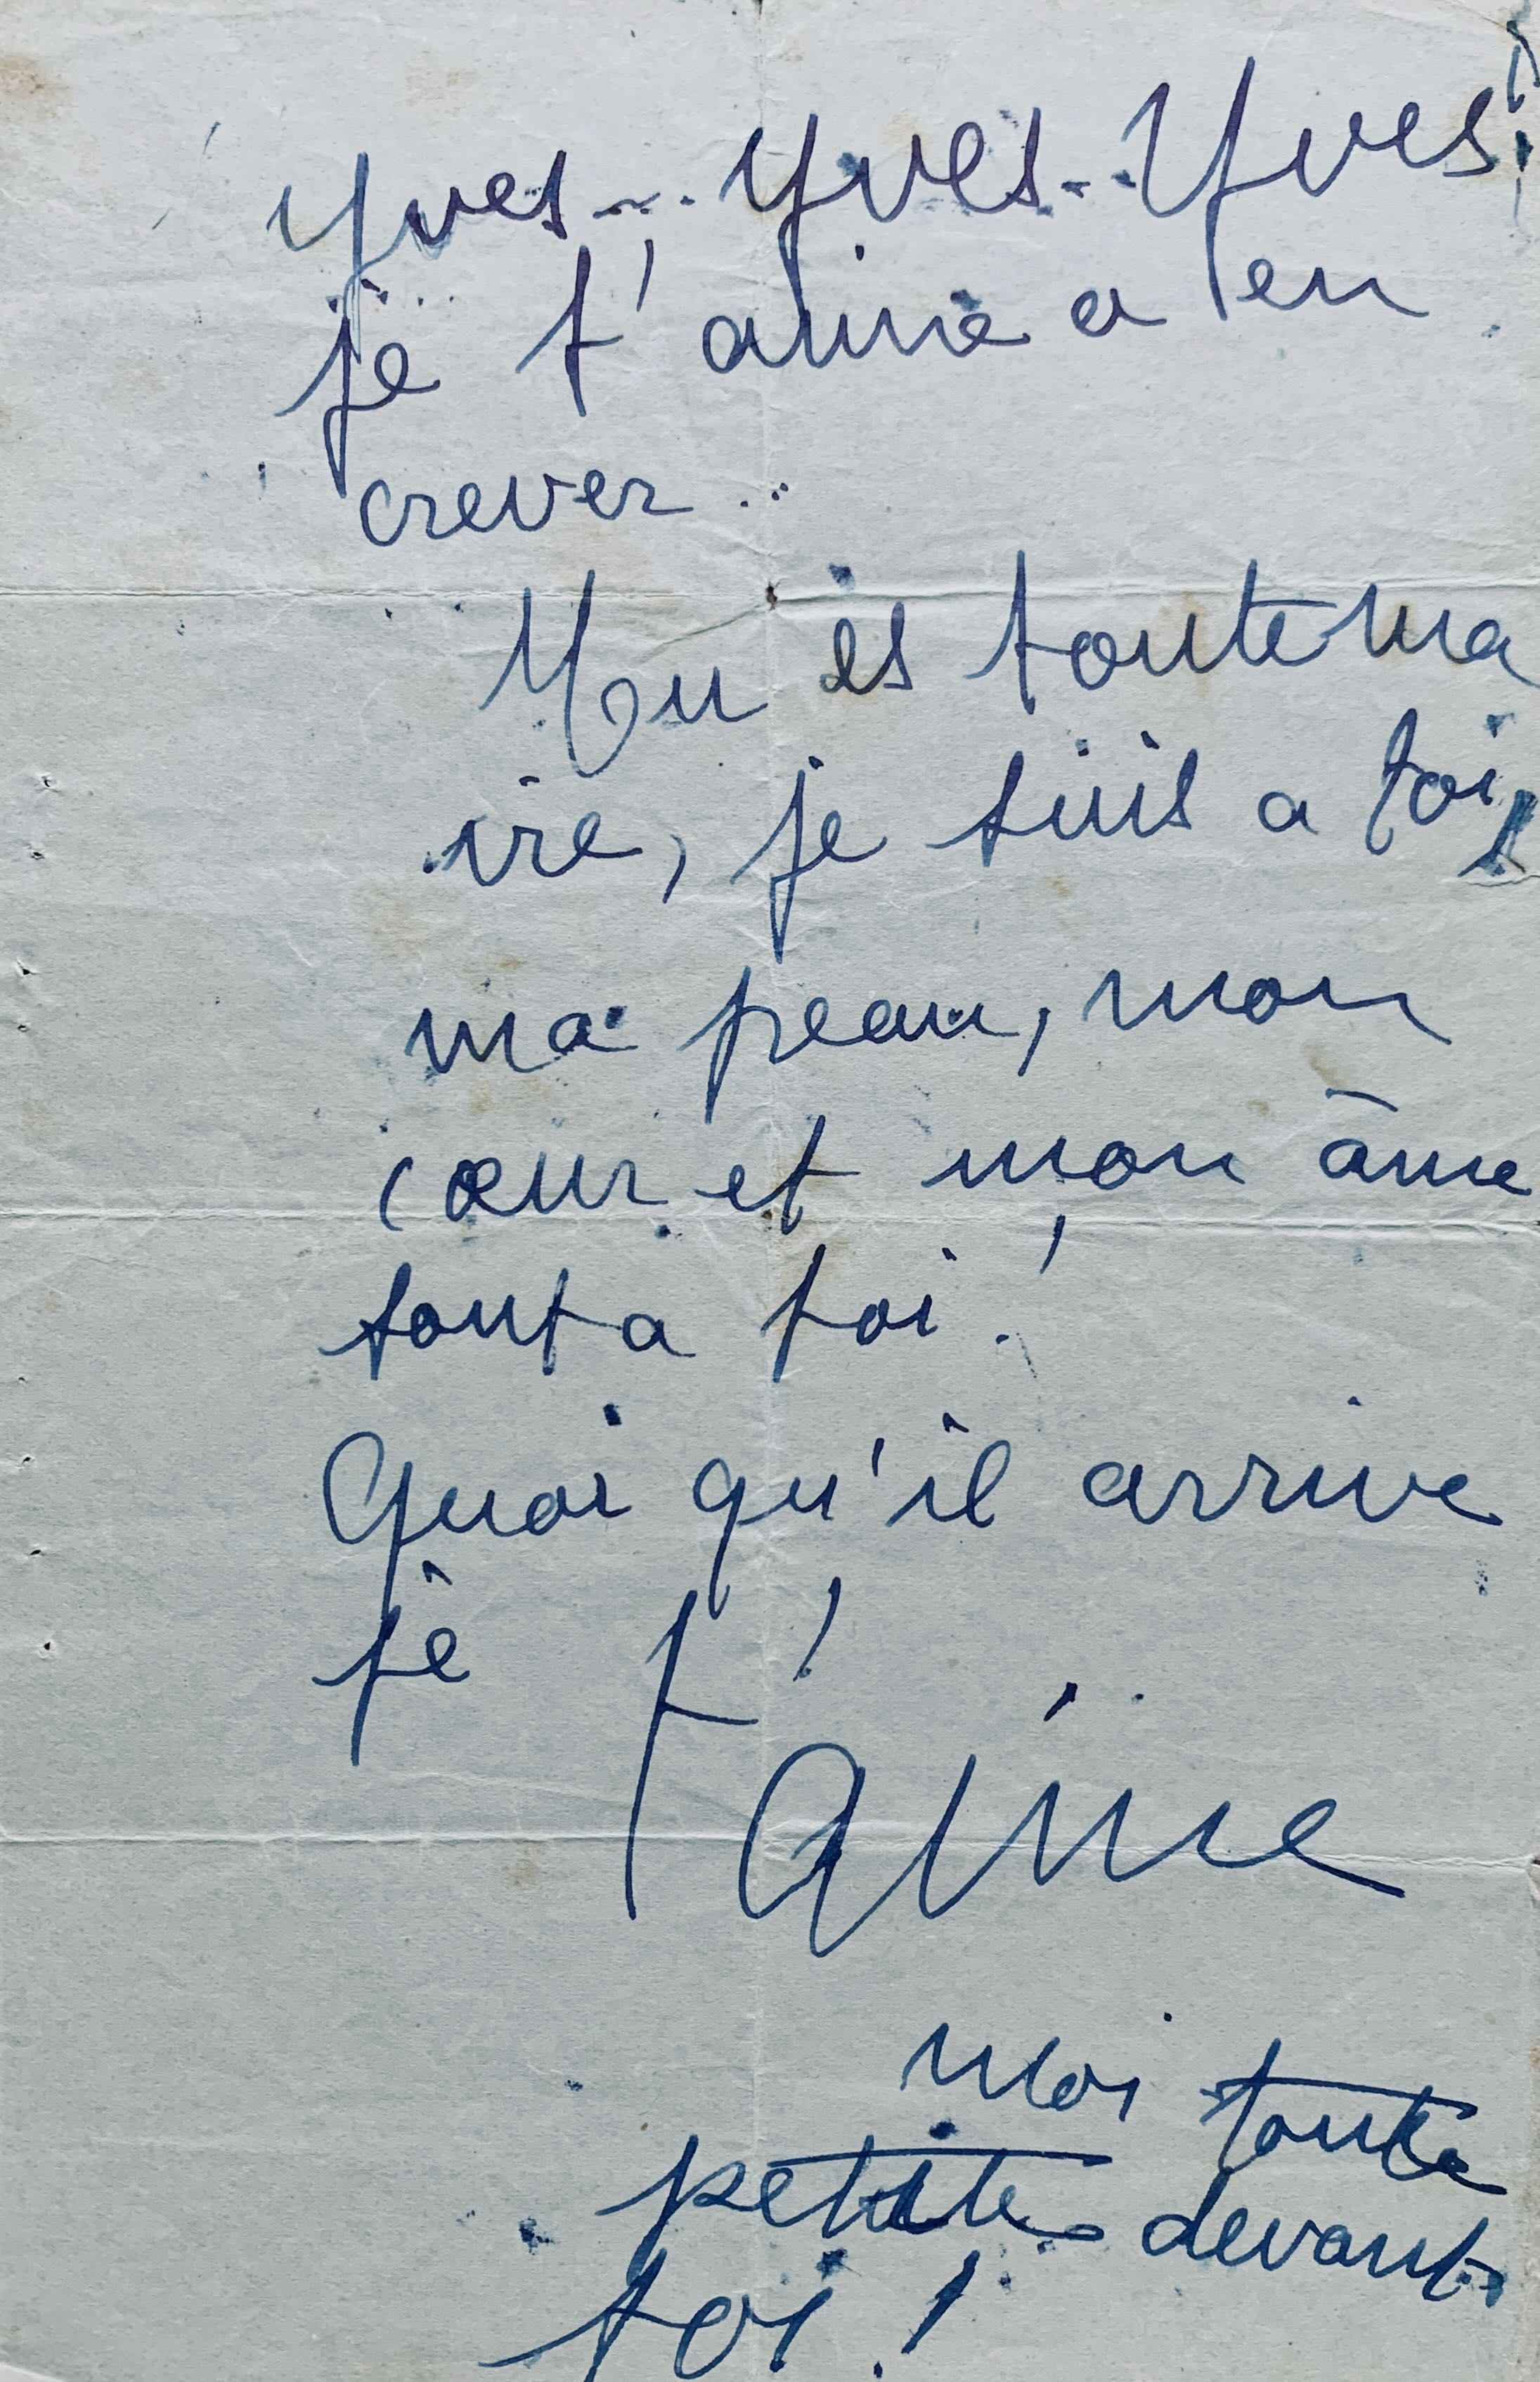 Yves... Yves... Yves!
je t'aime a en
crever...
Tu es toute ma
vie, je suis a toi,
ma peau, mon
cœur et mon âme
tout a toi!
Quoi qu'il arrive
je t'
aime
moi toute
petite devant
toi!